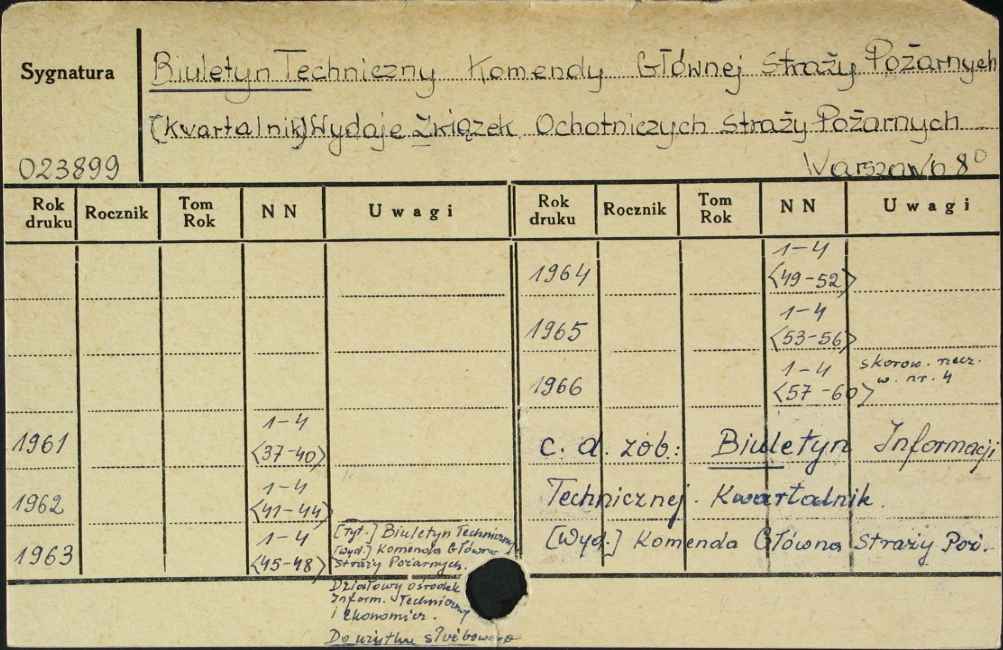 Sygnatura
Biuletyn Techniczny Komendy Głównej Straży Pożarnych
[Kwartalnik] Wydaje Związek Ochotniczych Straży Pożarnych
023899
Warszawa 8°
Rok druku Rocznik Tom Rok NN Uwagi
Rok druku Rocznik Tom Rok NN Uwagi
1961 1-4 <37-40>
1962 1-4 <41-44>
1963 1-4 <45-48> [Tyt.] Biuletyn Techniczny
[Wyd.] Komenda Główna
Straży Pożarnych.
Działowy ośrodek
Inform. Techniczny
i Ekonomicz.
Do użytku służbowego
1964 1-4 <49-52>
1965 1-4 <53-56>
1966 1-4 <57-60> skorow. rzecz.
w. nr. 4
c. d. zob.: Biuletyn Informacji
Technicznej. Kwartalnik.
[Wyd.] Komenda Główna Straży Poż.